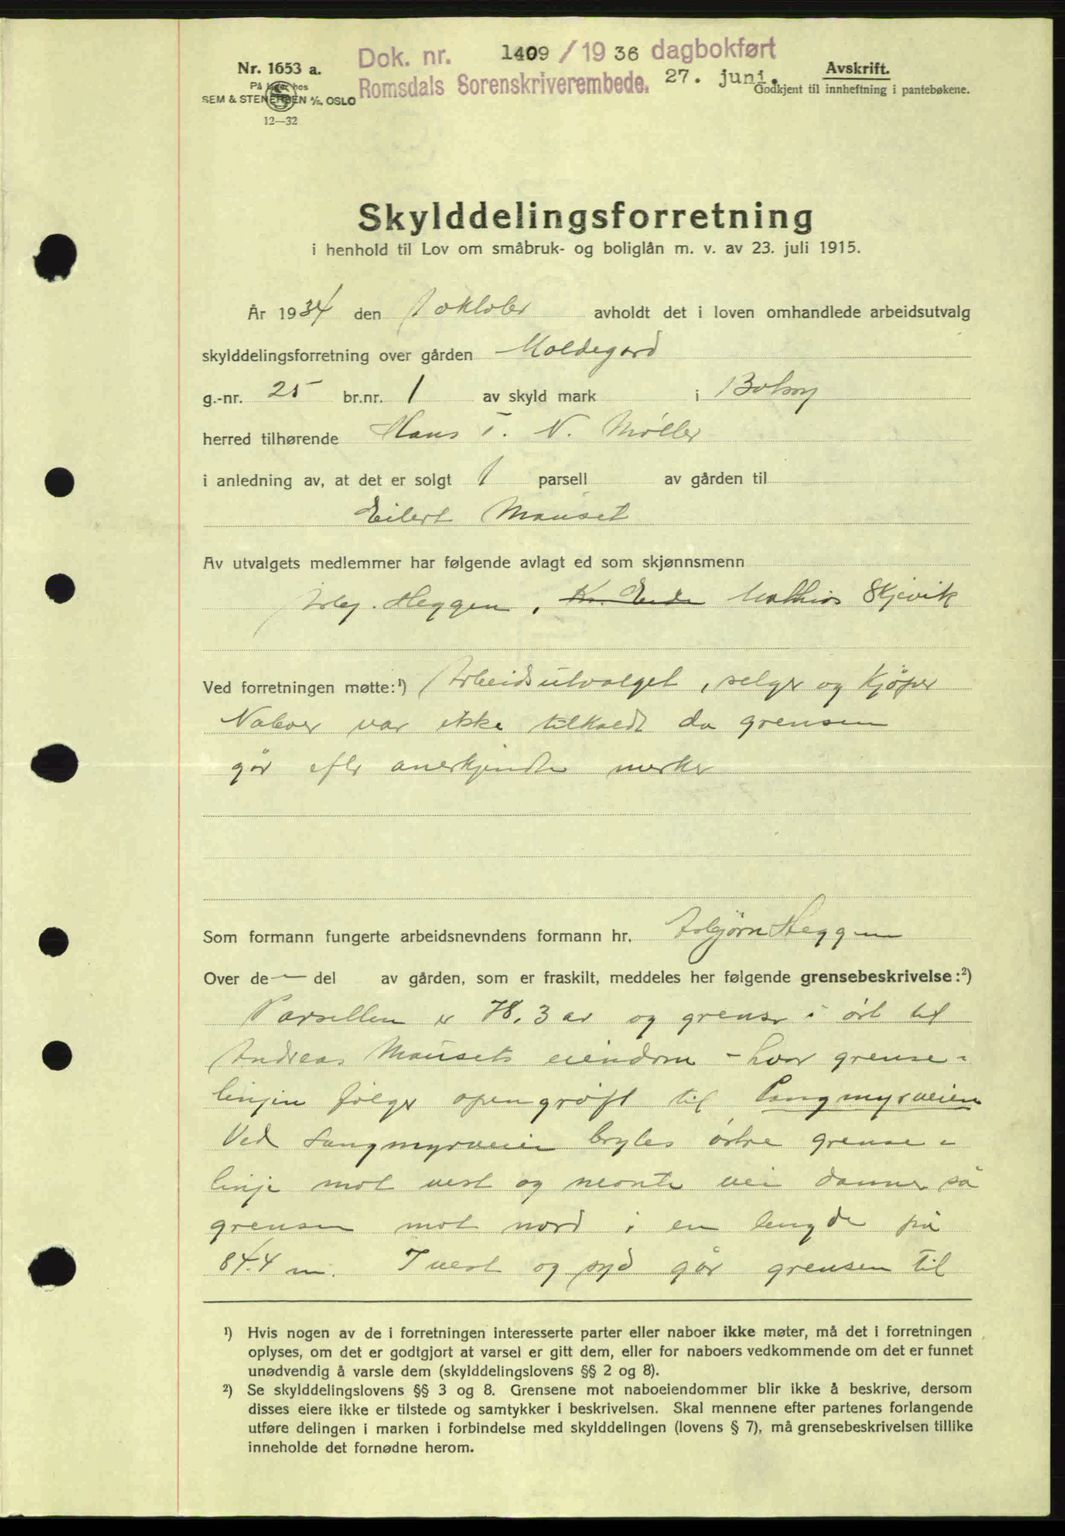 Dok. nr. 1409 / 19 36 dagbokført
Romsdals Sorenskriverembede. 27. juni.
Nr. 1653 a.
På lager hos
SEM & STENERSEN A/S, OSLO
12—32
Avskrift.
Godkjent til innheftning i pantebøkene.
Skylddelingsforretning
i henhold til Lov om småbruk- og boliglån m. v. av 23. juli 1915.
År 1934 den 1 oktober avholdt det i loven omhandlede arbeidsutvalg
skylddelingsforretning over gården Moldegard
g.-nr. 25 br.nr. 1 av skyld mark i Bolsøy
herred tilhørende Hans T. N. Møller
i anledning av, at det er solgt 1 parsell av gården til
Eilert Mauset
Av utvalgets medlemmer har følgende avlagt ed som skjønnsmenn
Asbj. Heggen, Kr. Eide Mathias Skjevik
Ved forretningen møtte:¹) Arbeidsutvalget, selger og kjöper
Naboer var ikke tilkaldt da grensen
gör efter anerkjendte merker
Som formann fungerte arbeidsnevndens formann hr. Asbjørn Heggen
Over de— del av gården, som er fraskilt, meddeles her følgende grensebeskrivelse:²)
Parsellen er 78,3 ar og grenser i öst til
Andreas Mausets eiendom - hvor grense-
linjen følger open grøft til Langmyrveien
Ved Langmyrveien brytes östre grense-
linje mot vest og nevnte vei danner så
grensen mot nord i en lengde på
84.4 m. I vest og syd går grensen til
¹) Hvis nogen av de i forretningen interesserte parter eller naboer ikke møter, må det i forretningen
oplyses, om det er godtgjort at varsel er gitt dem, eller for naboers vedkommende om det er funnet
unødvendig å varsle dem (skylddelingslovens §§ 2 og 8).
²) Se skylddelingslovens §§ 3 og 8. Grensene mot naboeiendommer blir ikke å beskrive, dersom
disses eiere ikke er tilstede og samtykker i beskrivelsen. Skal mennene efter partenes forlangende
utføre delingen i marken i forbindelse med skylddelingen (lovens § 7), må grensebeskrivelsen tillike
inneholde det fornødne herom.